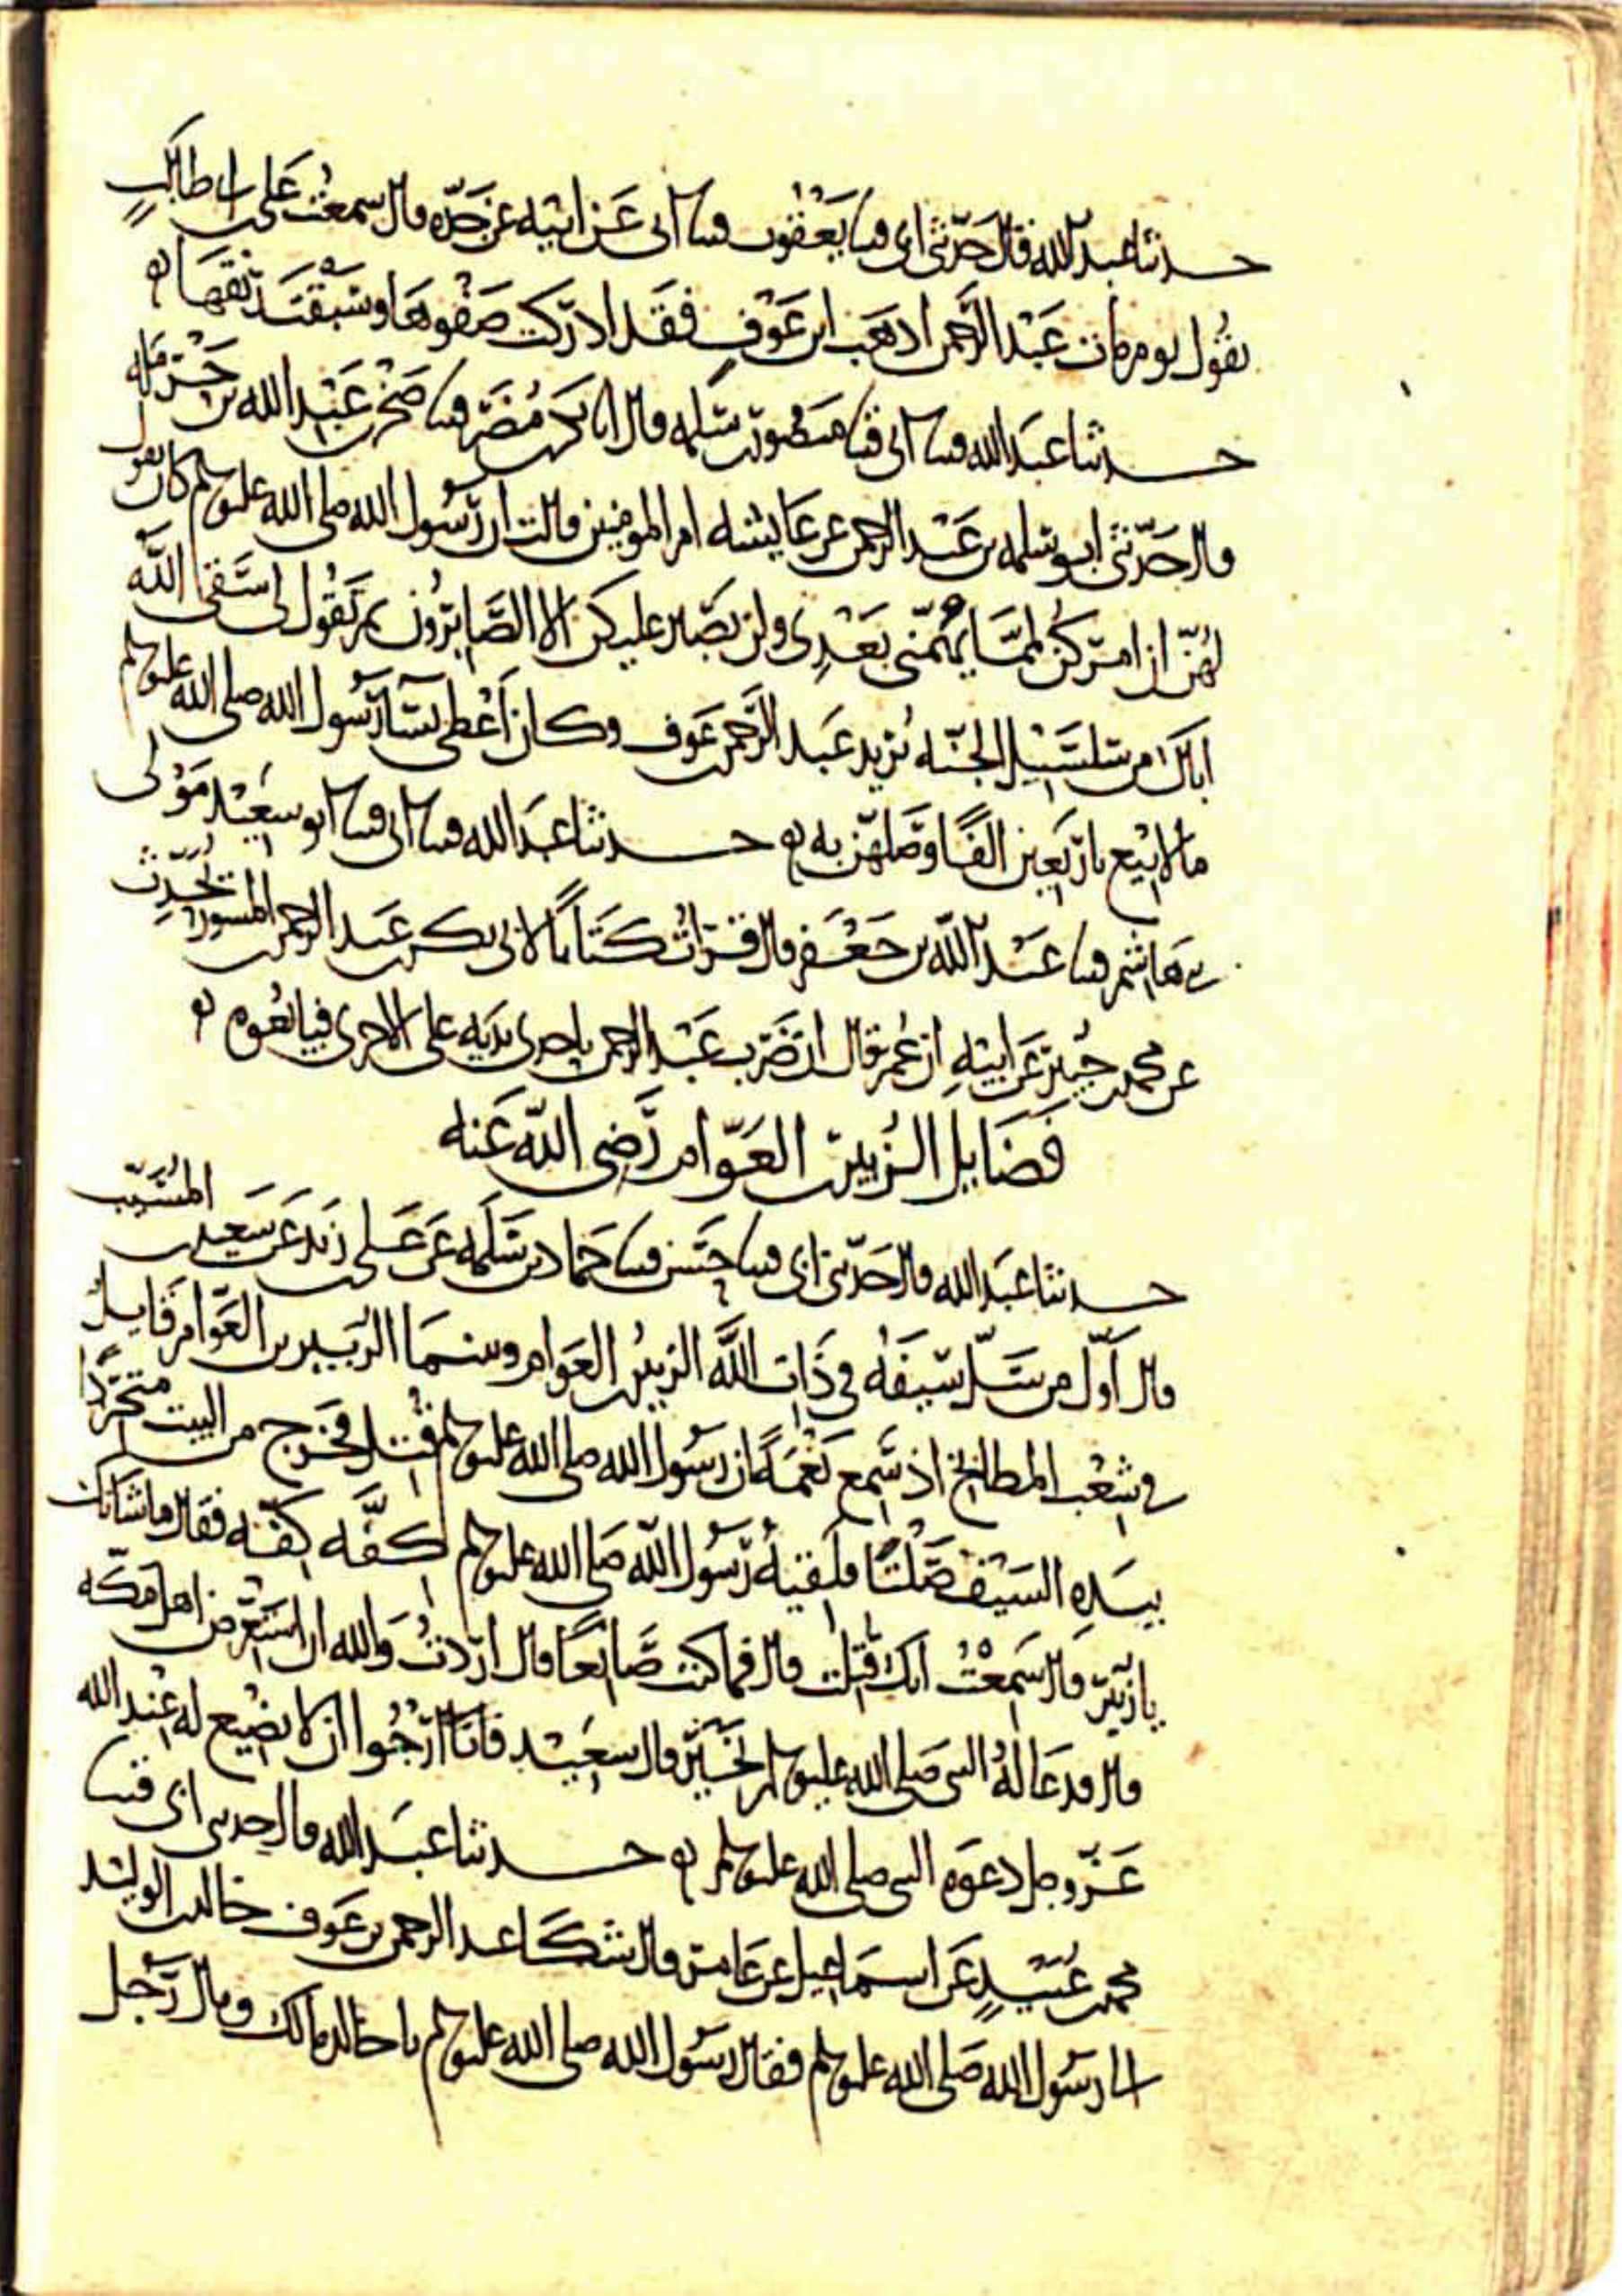 حدثنا عبد الله قال حدثنى ابى قثنا يعقوب قثنا ابى عن ابيه عن جده قال سمعت على بن ابى طالب
يقول يوم مات عبد الرحمن اذهب ابن عوف فقد ادركت صفوها وسبقت رنقها
حدثنا عبد الله قثنا ابى قثنا منصور بن سلمه قال انا بكر بن مضر قثنا صخر بن عبد الله بن حرمله
قال حدثنى ابو سلمه بن عبد الرحمن عن عايشه ام المومنين قالت ان رسول الله صلى الله عليه وسلم كان يقول
لهن ان امركن لمما يهمنى بعدى ولن يصبر عليكن الا الصابرون ثم تقول لى سقى الله
اباك من سلسبيل الجنه تريد عبد الرحمن بن عوف وكان اعطى نسا رسول الله صلى الله عليه وسلم
مالا بيع باربعين الفا وصلهن به حدثنا عبد الله قثنا ابى قثنا ابو سعيد مولى
بنى هاشم قثنا عبد الله بن جعفر قال قرات كتابا لابى بكر بن عبد الرحمن بن المسور يحدث
عن محمد بن جبير عن ابيه ان عمر قال ان ضرب عبد الرحمن باحدى يديه على الاخرى فبايعوه
فضايل الزبير بن العوام رضى الله عنه
حدثنا عبد الله قال حدثنى ابى قثنا حسن قثنا حماد بن سلمه عن على بن زيد عن سعيد بن المسيب
قال اول من سل سيفه فى ذات الله الزبير بن العوام وبينما الزبير بن العوام قايل
فى شعب المطابخ اذ سمع نغمة ان رسول الله صلى الله عليه وسلم قتل فخرج من البيت متجردا
بيده السيف صلتا فلقيه رسول الله صلى الله عليه وسلم كفه كفه فقال ما شانك
يا زبير قال سمعت انك قتلت قال فما كنت صانعا قال اردت والله ان استعرض اهل مكه
قال فدعا له النبى صلى الله عليه وسلم بخير قال سعيد فانا ارجوا ان لا يضيع له عند الله
عز وجل دعوه النبى صلى الله عليه وسلم حدثنا عبد الله قال حدثنى ابى قثنا
محمد بن عبيد عن اسماعيل عن عامر قال شكا عبد الرحمن بن عوف خالد بن الوليد
الى رسول الله صلى الله عليه وسلم فقال رسول الله صلى الله عليه وسلم يا خالد مالك ومال رجل